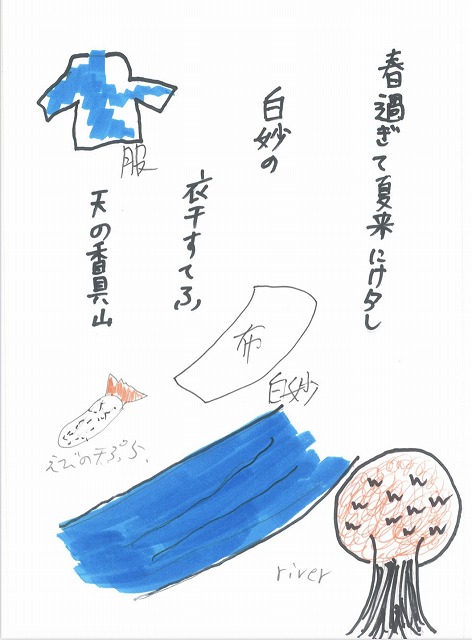 春過ぎて夏来にけタし
白妙の
衣干すてふ
天の香具山
服
布
白妙
えびの天ぷら、
river